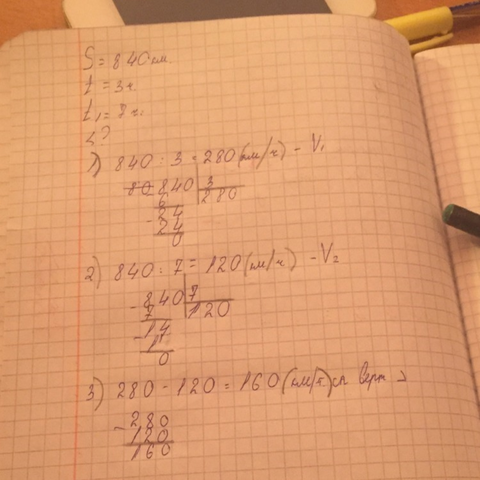 S = 840 км.
t = 3 ч.
t₁ = 8 ч.
?
1) 840 : 3 = 280 (км/ч) - V₁
840 3
6 280
- 24
24
0
2) 840 : 7 = 120 (км/ч) - V₂
- 840 7
7 120
- 14
14
0
3) 280 - 120 = 160 (км/ч)
- 280
120
160